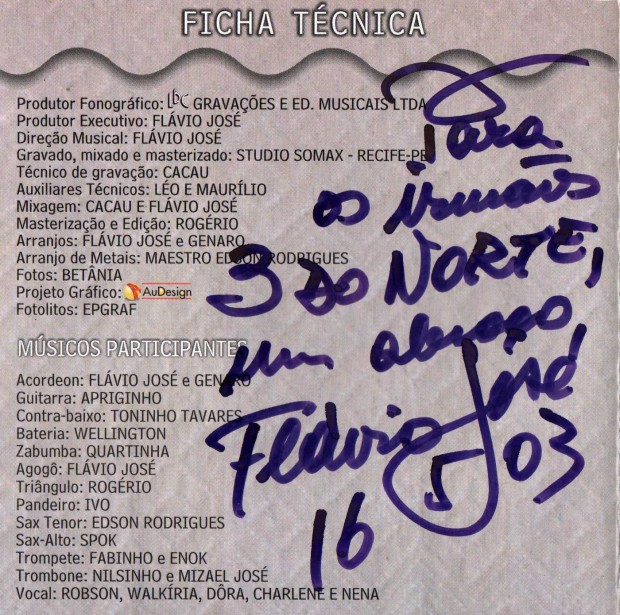 FICHA TÉCNICA
Produtor Fonográfico: LBC GRAVAÇÕES E ED. MUSICAIS LTDA
Produtor Executivo: FLÁVIO JOSÉ
Direção Musical: FLÁVIO JOSÉ
Gravado, mixado e masterizado: STUDIO SOMAX - RECIFE-PE
Técnico de gravação: CACAU
Auxiliares Técnicos: LÉO E MAURÍLIO
Mixagem: CACAU E FLÁVIO JOSÉ
Masterização e Edição: ROGÉRIO
Arranjos: FLÁVIO JOSÉ e GENARO
Arranjo de Metais: MAESTRO EDSON RODRIGUES
Fotos: BETÂNIA
Projeto Gráfico: AuDesign
Fotolitos: EPGRAF
MÚSICOS PARTICIPANTES
Acordeon: FLÁVIO JOSÉ e GENARO
Guitarra: APRIGINHO
Contra-baixo: TONINHO TAVARES
Bateria: WELLINGTON
Zabumba: QUARTINHA
Agogô: FLÁVIO JOSÉ
Triângulo: ROGÉRIO
Pandeiro: IVO
Sax Tenor: EDSON RODRIGUES
Sax-Alto: SPOK
Trompete: FABINHO e ENOK
Trombone: NILSINHO e MIZAEL JOSÉ
Vocal: ROBSON, WALKÍRIA, DÔRA, CHARLENE E NENA
Para
os irmãos
3 DO NORTE,
um abraço,
Flávio José
16 5 03